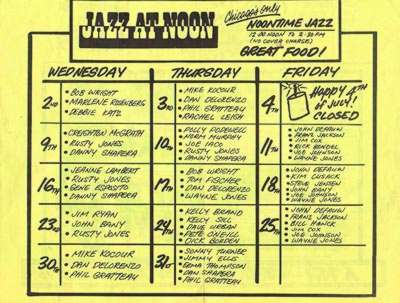 JAZZ AT NOON
Chicago's Only
NOONTIME JAZZ
12:00 NOON TO 2:30 PM
(NO COVER CHARGE)
GREAT FOOD!
WEDNESDAY
THURSDAY
FRIDAY
2ND
• BOB WRIGHT
• MARLENE ROSENBERG
• DEBBIE KATZ
3RD
• MIKE KOCOUR
• DAN DELORENZO
• PHIL GRATTEAU
• RACHEL LEIGH
4TH
HAPPY 4TH
OF JULY!
CLOSED
9TH
• CREIGHTON McGRATH
• RUSTY JONES
• DANNY SHAPERA
10TH
• POLLY PODEWELL
• NORM MURPHY
• JOE IACO
• RUSTY JONES
• DANNY SHAPERA
11TH
• JOHN DEFAUW
• FRANZ JACKSON
• JIM COX
• RICK
• JOE JOHNSON
• WAYNE JONES
16TH
• JEANNE LAMBERT
• RUSTY JONES
• GENE ESPOSITO
• DANNY SHAPERA
17TH
• BOB WRIGHT
• JIM FISCHER
• DAN DELORENZO
• WAYNE JONES
18TH
• JOHN DEFAUW
• KIM CUSACK
• STEVE JENSEN
• JOHN BANY
• JOE JOHNSON
• WAYNE JONES
23RD
• JIM RYAN
• JOHN BANY
• RUSTY JONES
24TH
• KELLY BRAND
• KELLY SILL
• DAVE URBAN
• PETE ONEILL
• DICK BORDEN
25TH
• JOHN DEFAUW
• FRANZ JACKSON
• BILL HANCK
• JIM COX
• JOE JOHNSON
• WAYNE JONES
30TH
• MIKE KOCOUR
• DAN DELORENZO
• PHIL GRATTEAU
31ST
• SONNY TURNER
• JIMMY ELLIS
• ERMA THOMPSON
• DAN SHAPERA
• PHIL GRATTEAU